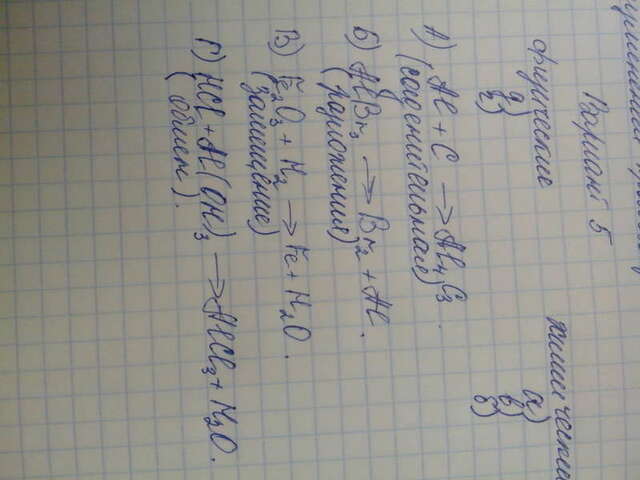 Вариант 5
физические химические
а) а)
в)
б)
А) Al + C → Al4C3.
(соеденительная)
Б) AlBr3 → Br2 + Al.
(разложения)
В) Fe2O3 + H2 → Fe + H2O.
(замещение)
Г) HCl + Al(OH)3 → AlCl3 + H2O.
(обмен).